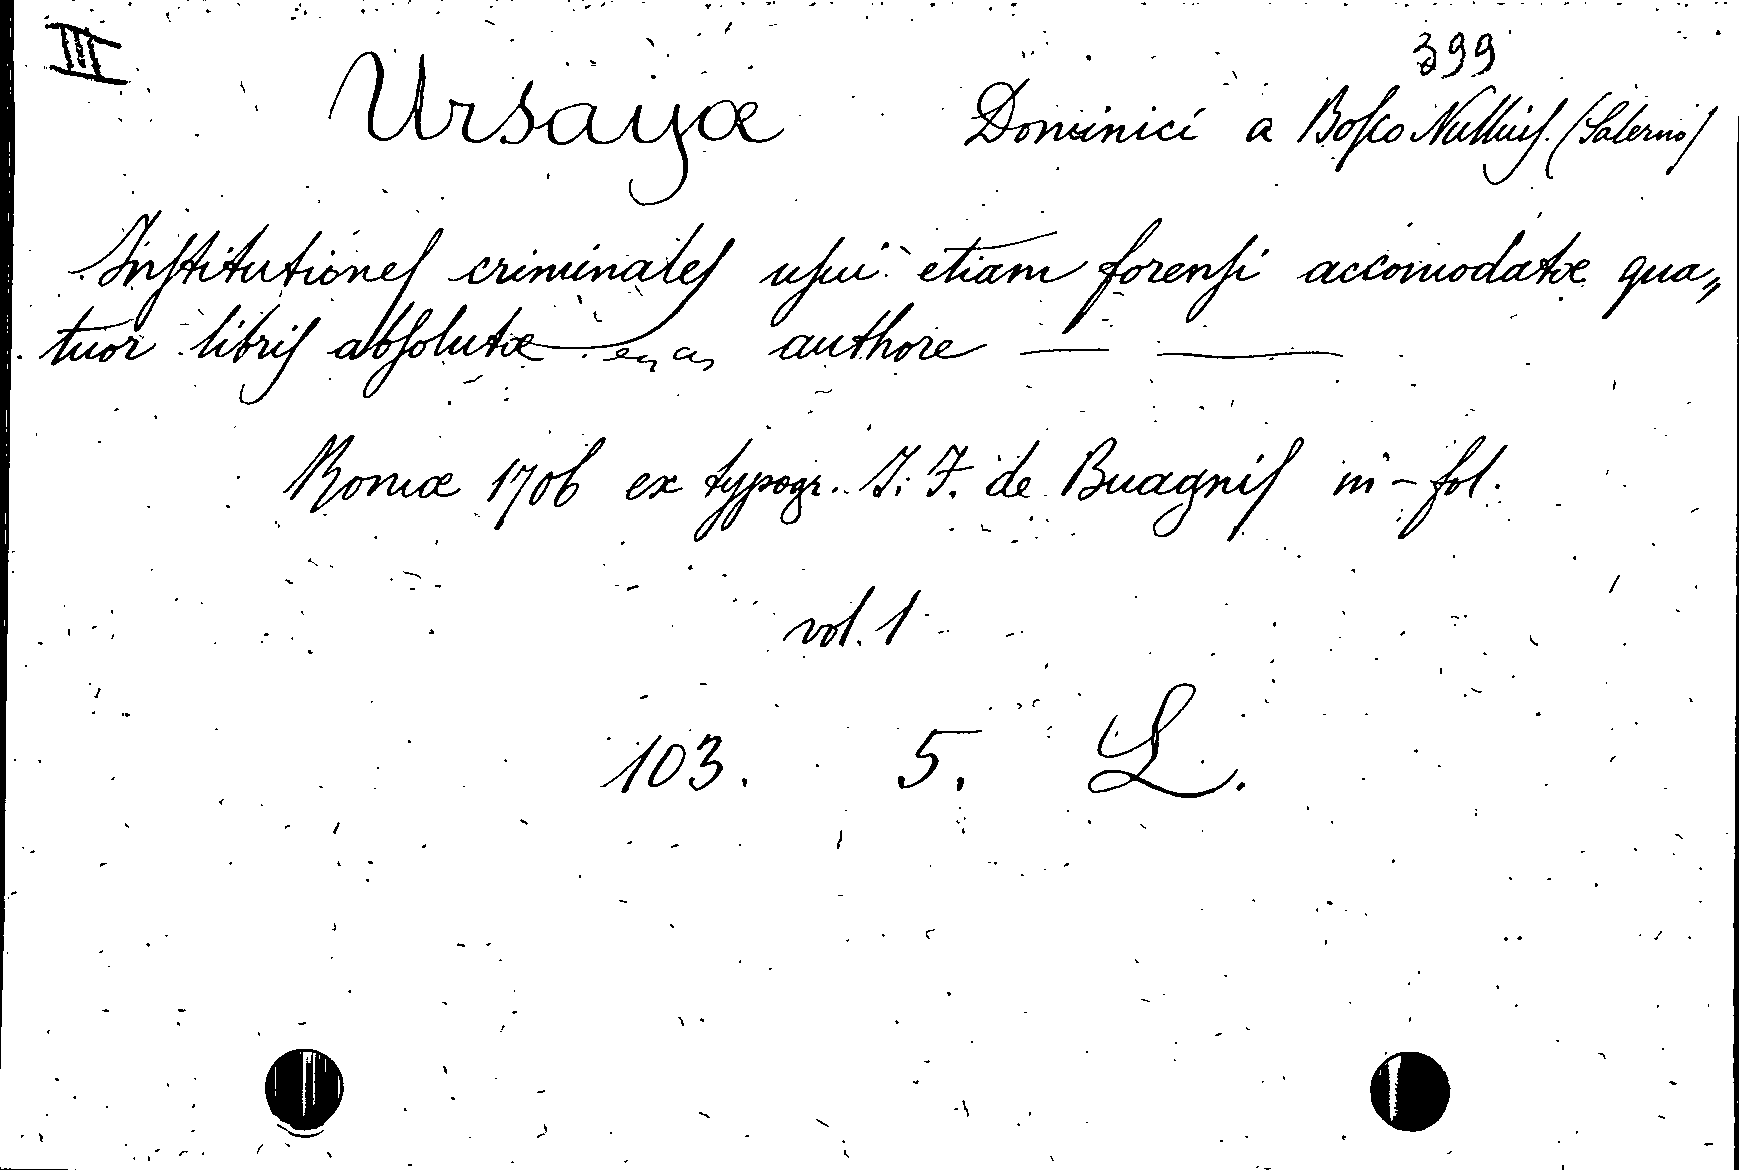 III
399
Ursayæ Dominici a Bosco Nullius. (Salerno)
Institutiones criminales usui etiam forensi accomodatæ qua„
tuor libris absolutæ authore — —
Romæ 1706 ex typogr. J. F. de Buagnis in-fol.
vol. 1
103. 5. L.